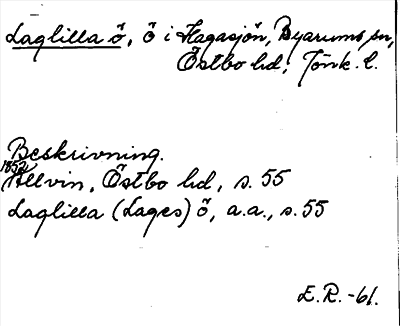 Laglilla ö, ö i Hagasjön, Byarums sn,
Östbo hd, Jönk. l.
Beskrivning.
1852
Allvin, Östbo hd, s. 55
Laglilla (Lages) ö, a.a., s. 55
E. R. -61.